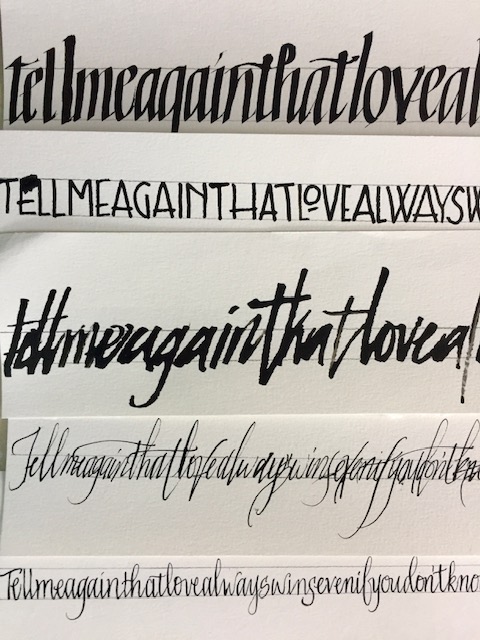 tellmeagainthatloveal
TELLMEAGAINTHATLOVEALWAYSW
tellmeagainthatloveal
Tellmeagainthatlovealwayswinsevenifyoudon'tkn
Tellmeagainthatlovealwayswinsevenifyoudon'tkno